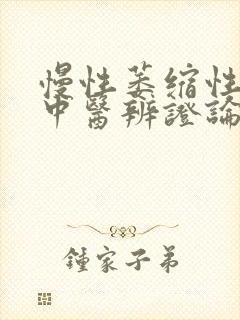 慢性萎缩性
中醫辨證論
鍾家子弟